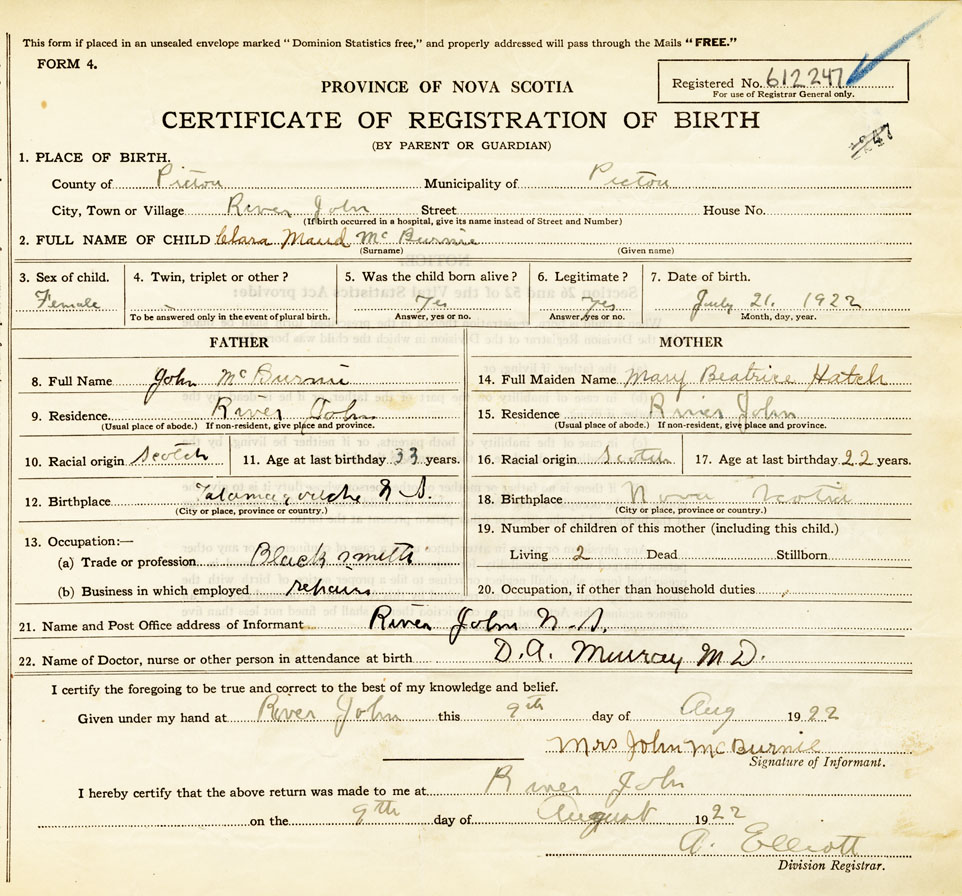 This form if placed in an unsealed envelope marked "Dominion Statistics free," and properly addressed will pass through the Mails "FREE."
FORM 4.
PROVINCE OF NOVA SCOTIA
Registered No. 612247
For use of Registrar General only.
CERTIFICATE OF REGISTRATION OF BIRTH
(BY PARENT OR GUARDIAN)
1. PLACE OF BIRTH.
County of Pictou Municipality of Pictou
City, Town or Village River John Street House No.
(If birth occurred in a hospital, give its name instead of Street and Number)
2. FULL NAME OF CHILD Clara Maud McBurnie
(Surname) (Given name)
3. Sex of child. 4. Twin, triplet or other? 5. Was the child born alive? 6. Legitimate? 7. Date of birth.
Female - Yes Yes July 21. 1922
To be answered only in the event of plural birth. Answer, yes or no. Answer, yes or no. Month, day, year.
FATHER MOTHER
8. Full Name John McBurnie 14. Full Maiden Name Mary Beatrice Hatch
9. Residence River John 15. Residence River John
(Usual place of abode.) If non-resident, give place and province. (Usual place of abode.) If non-resident, give place and province.
10. Racial origin Scotch 11. Age at last birthday 33 years. 16. Racial origin Scotch 17. Age at last birthday 22 years.
12. Birthplace Tatamagouche N.S. 18. Birthplace Nova Scotia
(City or place, province or country.) (City or place, province or country.)
19. Number of children of this mother (including this child.)
13. Occupation:—
(a) Trade or profession Blacksmith Living 2 Dead Stillborn
(b) Business in which employed repairs 20. Occupation, if other than household duties
21. Name and Post Office address of Informant River John N.S.
22. Name of Doctor, nurse or other person in attendance at birth D.A. Murray M.D.
I certify the foregoing to be true and correct to the best of my knowledge and belief.
Given under my hand at River John this 9th day of Aug 1922
Mrs John McBurnie
Signature of Informant.
I hereby certify that the above return was made to me at River John
on the 9th day of August 1922
A. Elliott
Division Registrar.